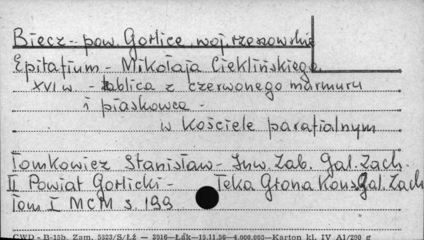 Biecz - pow. Gorlice, woj. rzeszowskie
Epitafium - Mikołaja Cieklińskiego
XVI w. - tablica z czerwonego marmuru
i piaskowca -
w kościele parafialnym
Tomkowicz Stanisław - Inw. Zab. Gal. Zach.
II Powiat Gorlicki - Teka Grona Kons. Gal. Zach
Tom I MCM s. 199
CWD - B-15b. Zam. 5523/S/Łż — 3516—Łąk—15.11.56—4.000.000—Karton kl. IV A1/290 g